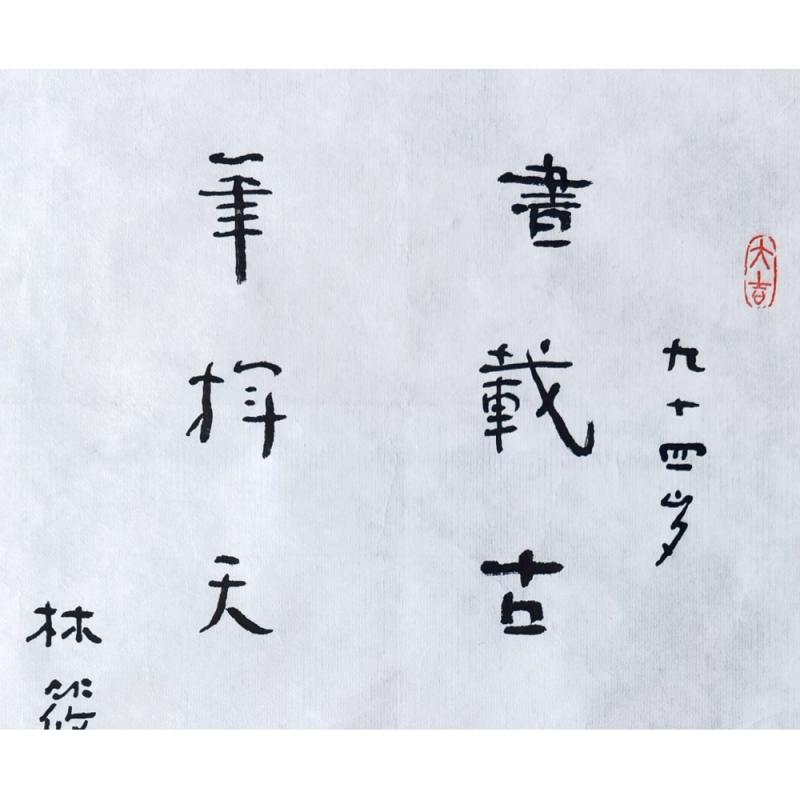 大吉
九十四岁
書載古
筆挥天
林筱